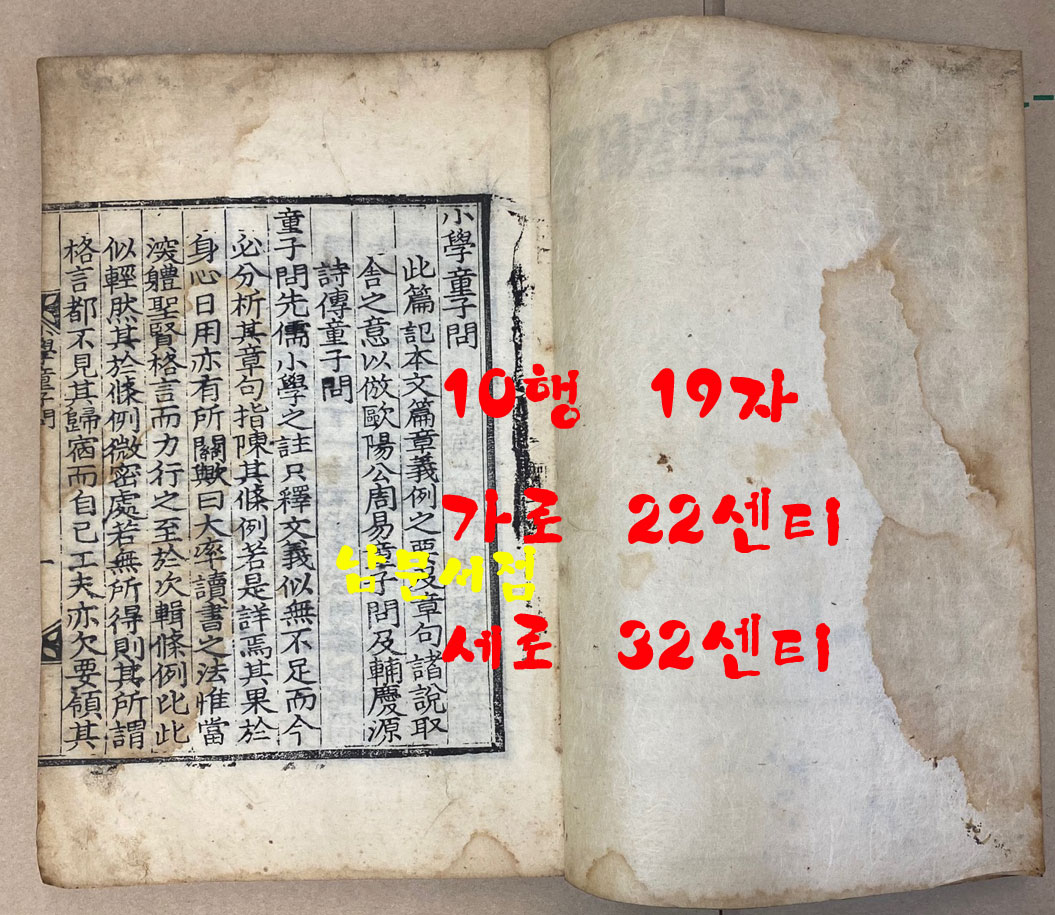 小學童子問
此篇記本文篇章義例之要及章句諸說取
舍之意以倣歐陽公周易童子問及輔慶源
詩傳童子問
童子問先儒小學之註只釋文義似無不足而今
必分析其章句指陳其條例若是詳焉其果於
身心日用亦有所關歟曰大率讀書之法惟當
深體聖賢格言而力行之至於次輯條例比此
似輕然其於條例微密處若無所得則其所謂
格言都不見其歸宿而自己工夫亦欠要領其
小學童子問
一
10행 19자
가로 22센티
남문서점
세로 32센티